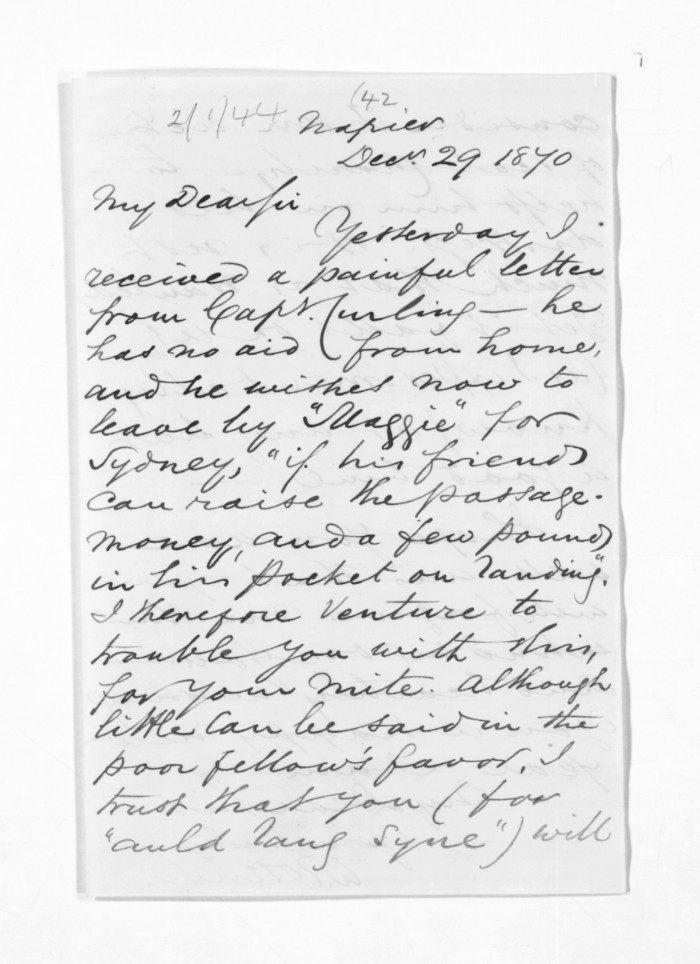 2/1/44 (42
Napier.
Decr. 29 1870
My Dear Sir
Yesterday I
received a painful letter
from Capt. Curling – he
has no aid from home,
and he wishes now to
leave by "Maggie" for
Sydney, "if his friends
can raise the passage-
money, and a few pounds
in his pocket on landing".
I therefore venture to
trouble you with this,
for your mite. Although
little can be said in the
poor fellow's favor, I
trust that you (for
"auld lang syne") will